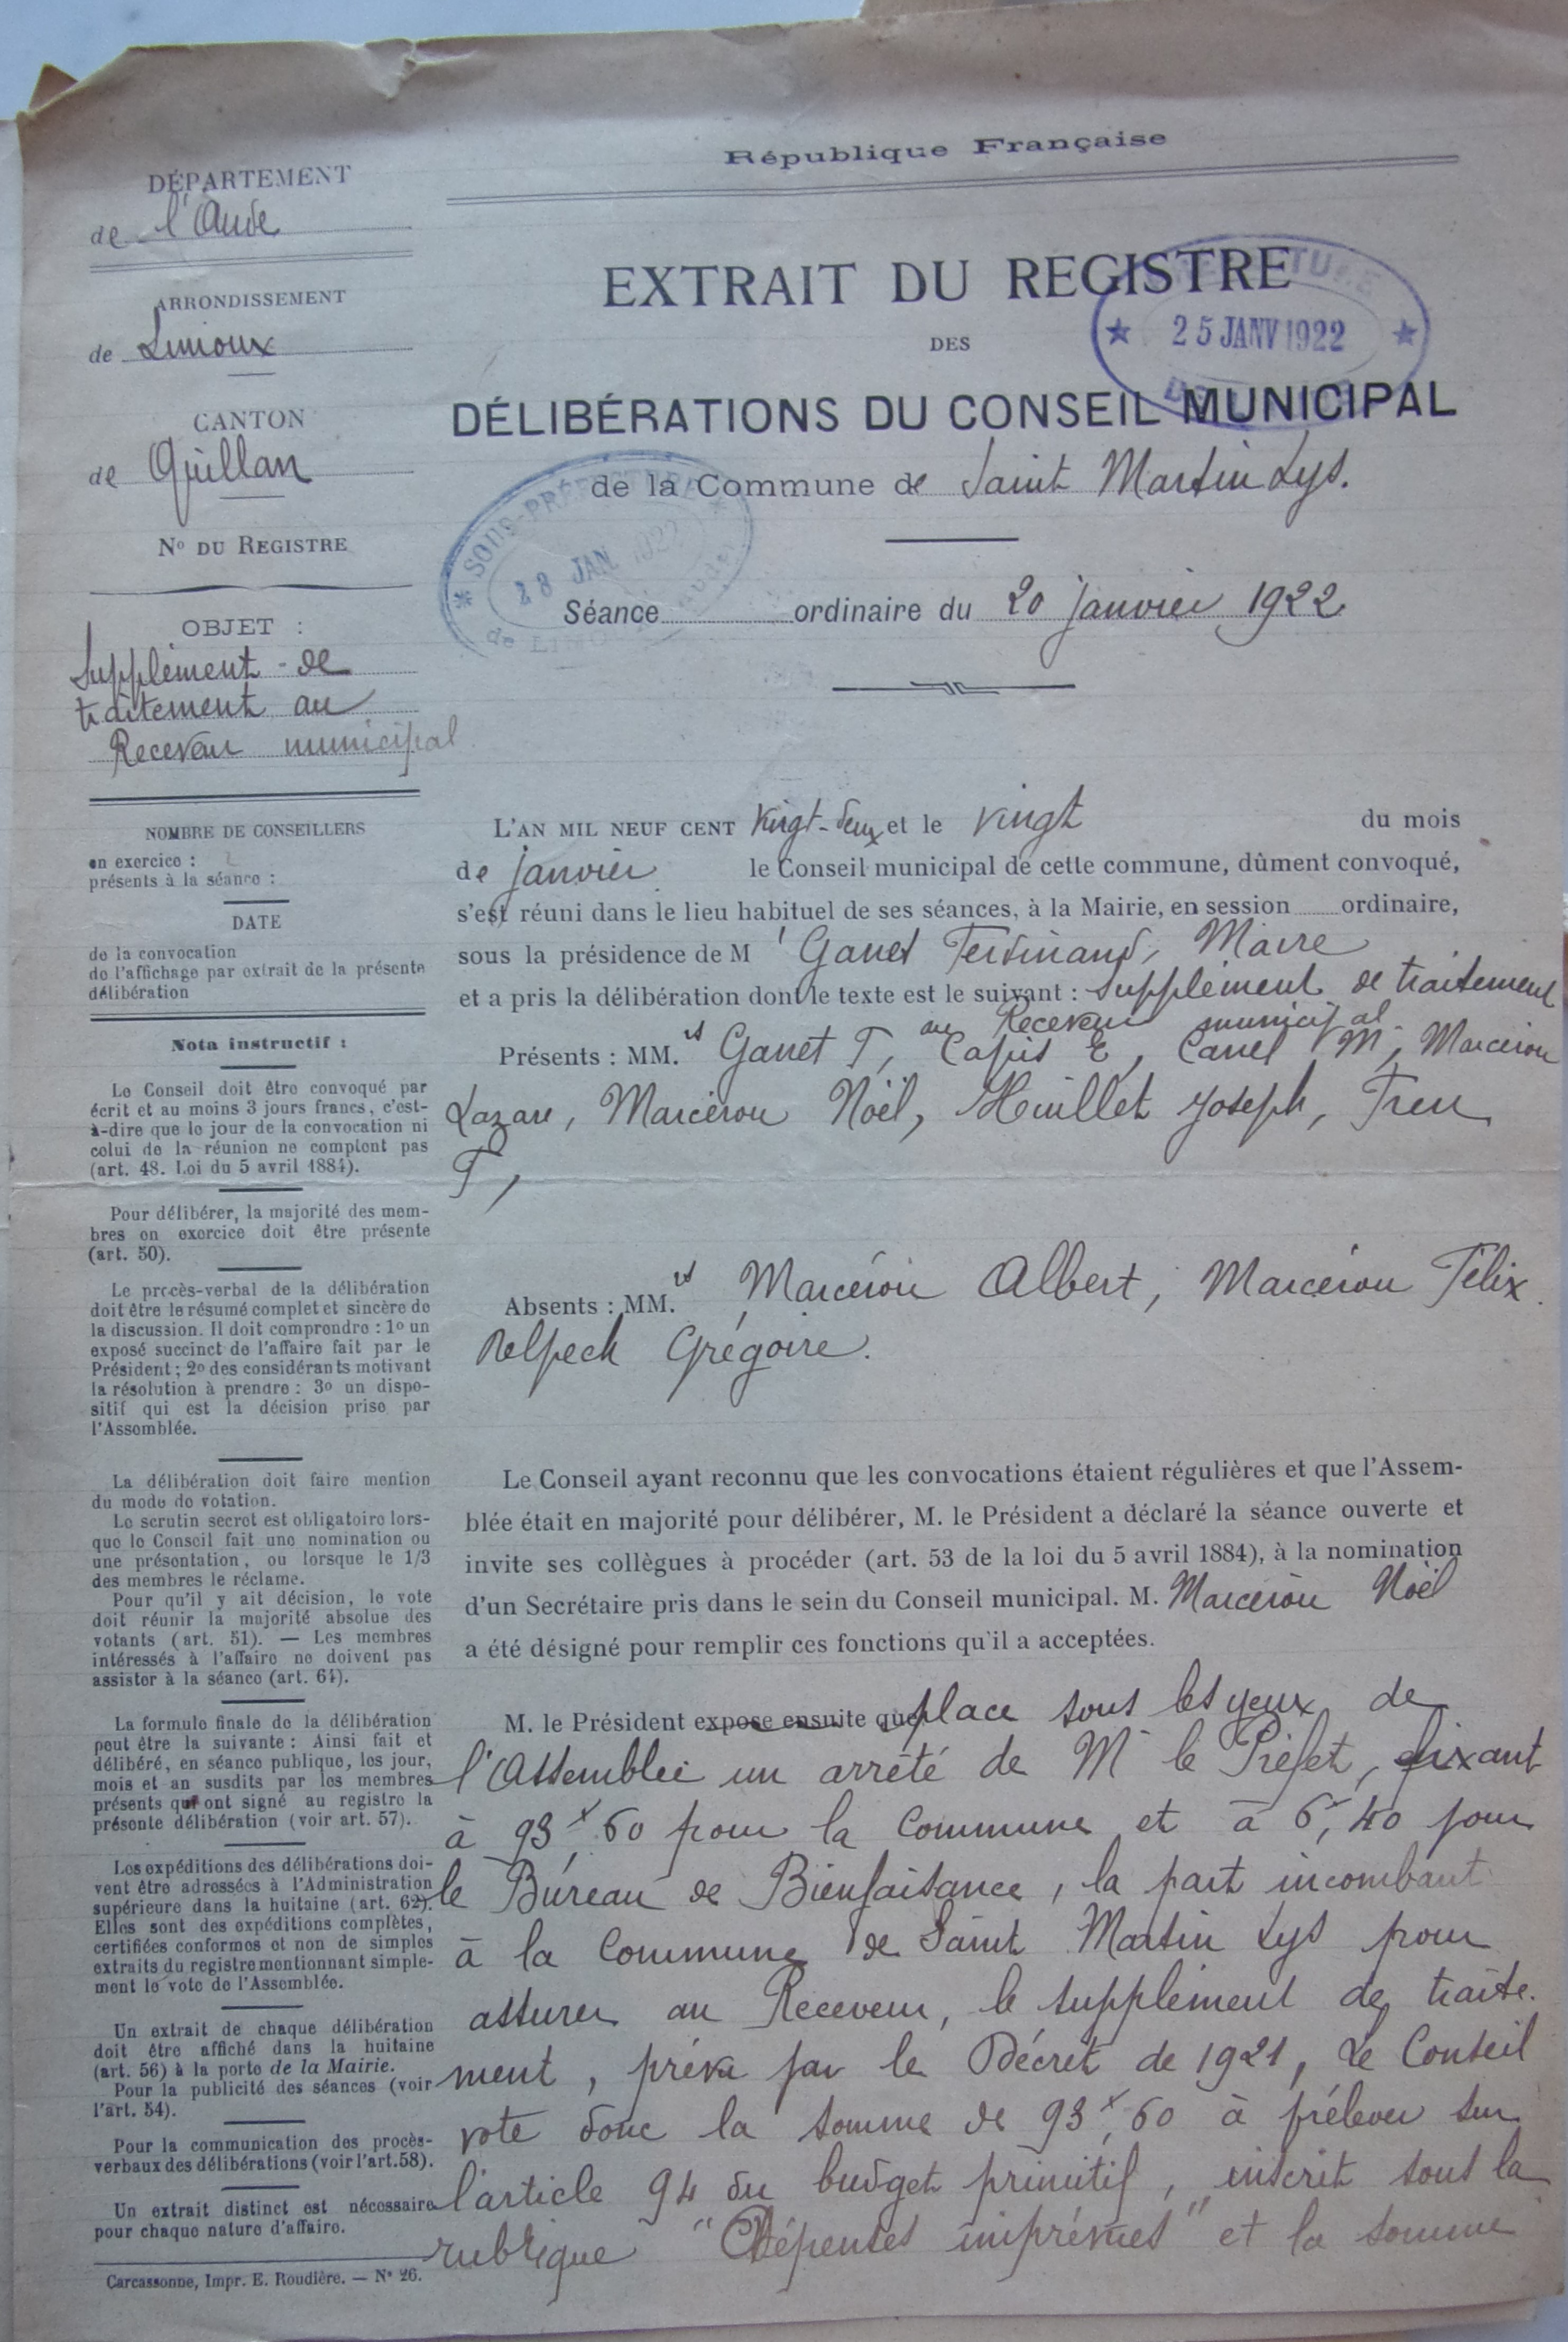 République Française
DÉPARTEMENT
de l'Aude
ARRONDISSEMENT
de Limoux
CANTON
de Quillan
No DU REGISTRE
OBJET :
Supplément de
traitement au
Receveur municipal
NOMBRE DE CONSEILLERS
en exercice :
présents à la séance :
DATE
de la convocation
de l'affichage par extrait de la présente
délibération
Nota instructif :
Le Conseil doit être convoqué par
écrit et au moins 3 jours francs, c'est-
à-dire que le jour de la convocation ni
celui de la réunion ne comptent pas
(art. 48. Loi du 5 avril 1884).
Pour délibérer, la majorité des mem-
bres en exercice doit être présente
(art. 50).
Le procès-verbal de la délibération
doit être le résumé complet et sincère de
la discussion. Il doit comprendre : 1o un
exposé succinct de l'affaire fait par le
Président ; 2o des considérants motivant
la résolution à prendre : 3o un dispo-
sitif qui est la décision prise par
l'Assemblée.
La délibération doit faire mention
du mode de votation.
Le scrutin secret est obligatoire lors-
que le Conseil fait une nomination ou
une présentation, ou lorsque le 1/3
des membres le réclame.
Pour qu'il y ait décision, le vote
doit réunir la majorité absolue des
votants (art. 51). — Les membres
intéressés à l'affaire ne doivent pas
assister à la séance (art. 64).
La formule finale de la délibération
peut être la suivante : Ainsi fait et
délibéré, en séance publique, les jour,
mois et an susdits par les membres
présents qui ont signé au registre la
présente délibération (voir art. 57).
Les expéditions des délibérations doi-
vent être adressées à l'Administration
supérieure dans la huitaine (art. 62).
Elles sont des expéditions complètes,
certifiées conformes et non de simples
extraits du registre mentionnant simple-
ment le vote de l'Assemblée.
Un extrait de chaque délibération
doit être affiché dans la huitaine
(art. 56) à la porte de la Mairie.
Pour la publicité des séances (voir
l'art. 54).
Pour la communication des procès-
verbaux des délibérations (voir l'art. 58).
Un extrait distinct est nécessaire
pour chaque nature d'affaire.
Carcassonne, Impr. E. Roudière. — No 26.
EXTRAIT DU REGISTRE
25 JANV 1922
DES
DÉLIBÉRATIONS DU CONSEIL MUNICIPAL
de la Commune de Saint Martin Lys.
SOUS-PRÉFECTURE
28 JAN 1922
Séance ordinaire du 20 janvier 1922
L'AN MIL NEUF CENT vingt-deux et le vingt du mois
de janvier le Conseil municipal de cette commune, dûment convoqué,
s'est réuni dans le lieu habituel de ses séances, à la Mairie, en session ordinaire,
sous la présidence de M Ganet Ferdinand, Maire
et a pris la délibération dont le texte est le suivant : Supplément de traitement
au Receveur municipal
Présents : MM. rs Ganet F, Capis E, Canel M, Marcerou
Lazare, Marcerou Noël, Huillet Joseph, Freu
F,
Absents : MM. rs Marcerou Albert, Marcerou Félix
Delpech Grégoire.
Le Conseil ayant reconnu que les convocations étaient régulières et que l'Assem-
blée était en majorité pour délibérer, M. le Président a déclaré la séance ouverte et
invite ses collègues à procéder (art. 53 de la loi du 5 avril 1884), à la nomination
d'un Secrétaire pris dans le sein du Conseil municipal. M. Marcerou Noël
a été désigné pour remplir ces fonctions qu'il a acceptées.
M. le Président expose ensuite que place sous les yeux de
l'Assemblée un arrêté de M le Préfet, fixant
à 93f,60 pour la Commune et à 6f,40 pour
le Bureau de Bienfaisance, la part incombant
à la Commune de Saint Martin Lys pour
assurer au Receveur, le supplément de traite-
ment, prévu par le Décret de 1921, Le Conseil
vote donc la somme de 93f,60 à prélever sur
l'article 94 du budget primitif, inscrit sous la
rubrique "Dépenses imprévues" et la somme